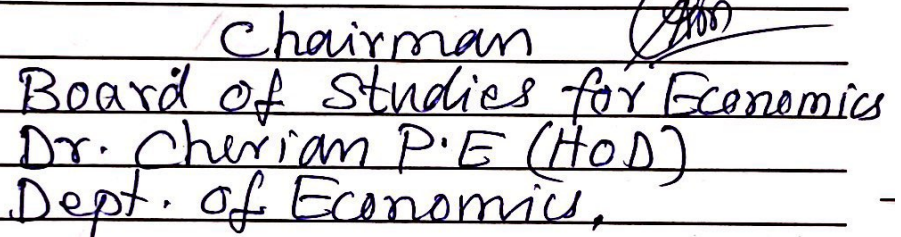 Chairman
Board of Studies for Economics
Dr. Cherian P.E (HOD)
Dept. of Economics,